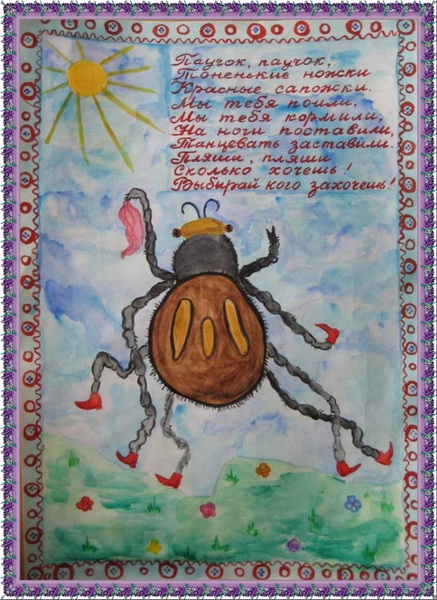 Паучок, паучок,
Тоненькие ножки
Красные сапожки.
Мы тебя поили,
Мы тебя кормили,
На ноги поставили,
Танцевать заставили.
Пляши, пляши
Сколько хочешь!
Выбирай кого захочешь!